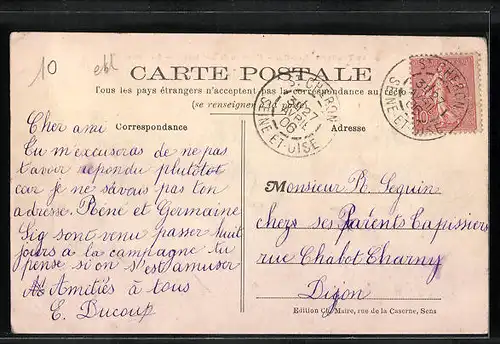 10
CARTE POSTALE
Tous les pays étrangers n'acceptent pas la correspondance au
(se renseigner
Correspondance
Adresse
ST CHERON
27
AVRIL
06
SEINE-ET-OISE
ST CHERON
SEINE-ET-OISE
10
Cher ami
Tu m'excuseras de ne pas
t'avoir repondu plutôtot
car je ne savais pas ton
adresse. Réné et Germaine
Sig sont venu passer huit
jours a la campagne tu
pense si on s'est amuser
Amitiés à tous
E. Ducoup
Monsieur R. Seguin
chezs ses Parents Tapissiers
rue Chabot Charny
Dijon
Edition Ch. Maire, rue de la Caserne, Sens